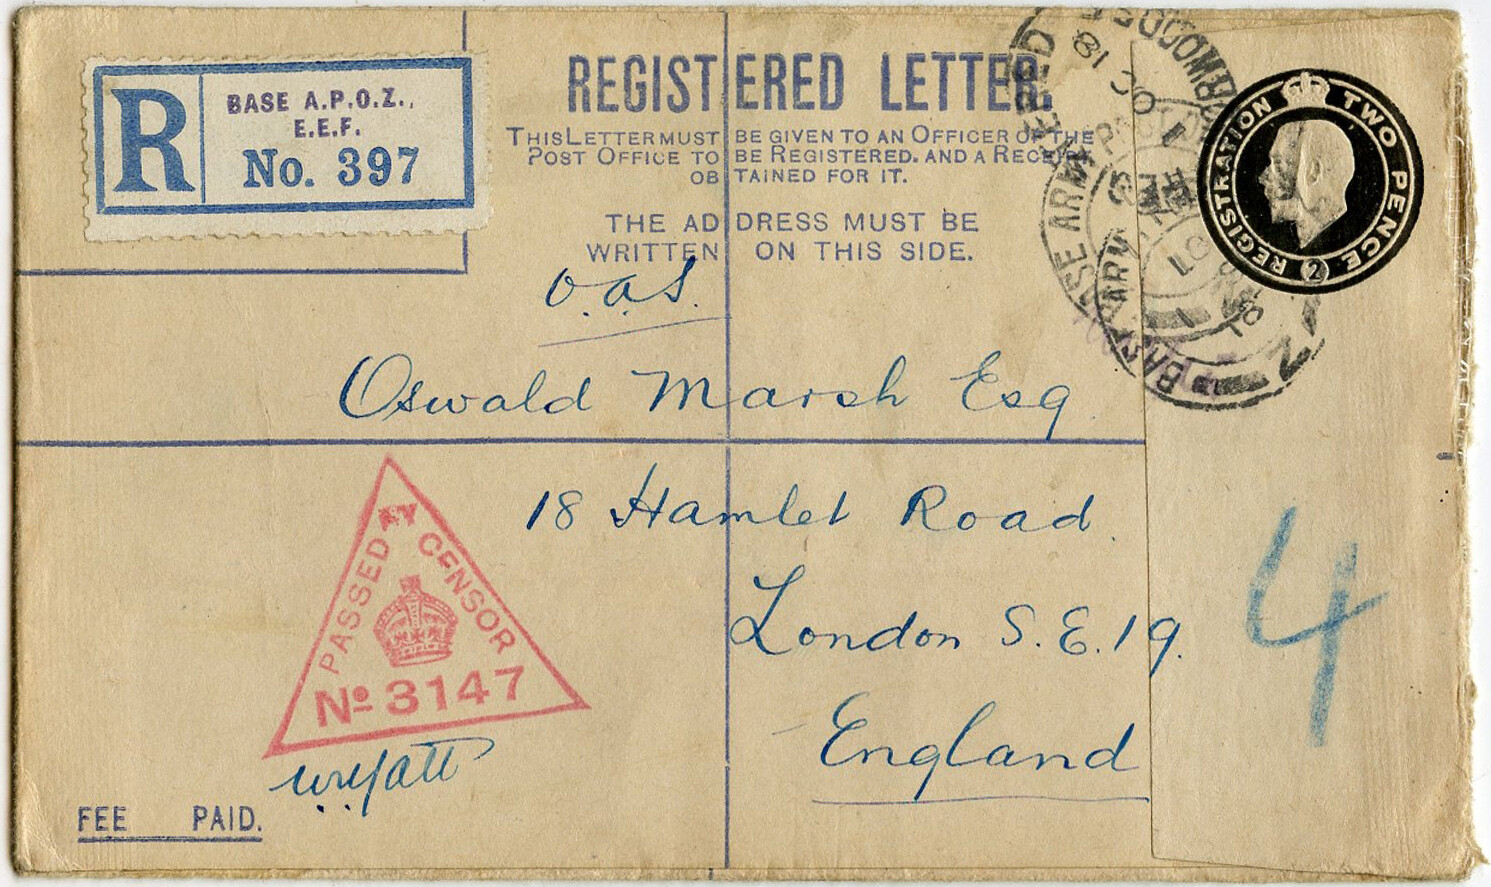 R
BASE A.P.O.Z.,
E.E.F.
No. 397
REGISTERED LETTER.
THIS LETTER MUST BE GIVEN TO AN OFFICER OF THE
POST OFFICE TO BE REGISTERED. AND A RECEIPT
OBTAINED FOR IT.
THE ADDRESS MUST BE
WRITTEN ON THIS SIDE.
REGISTRATION TWO PENCE
2
BASE ARMY
18
O.A.S.
Oswald Marsh Esq
18 Hamlet Road.
London S.E.19.
England
PASSED BY CENSOR
No 3147
4
FEE PAID.